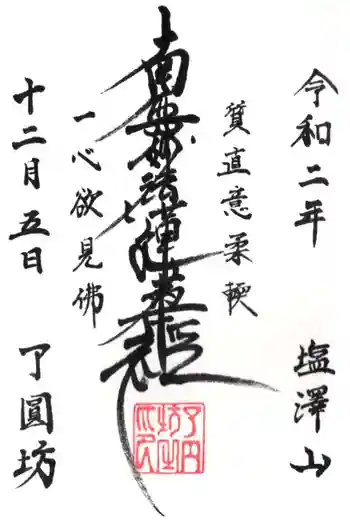 令和二年 塩澤山
質直意柔輭
南無妙法蓮華経
一心欲見佛
十二月五日 了圓坊
了円坊之印